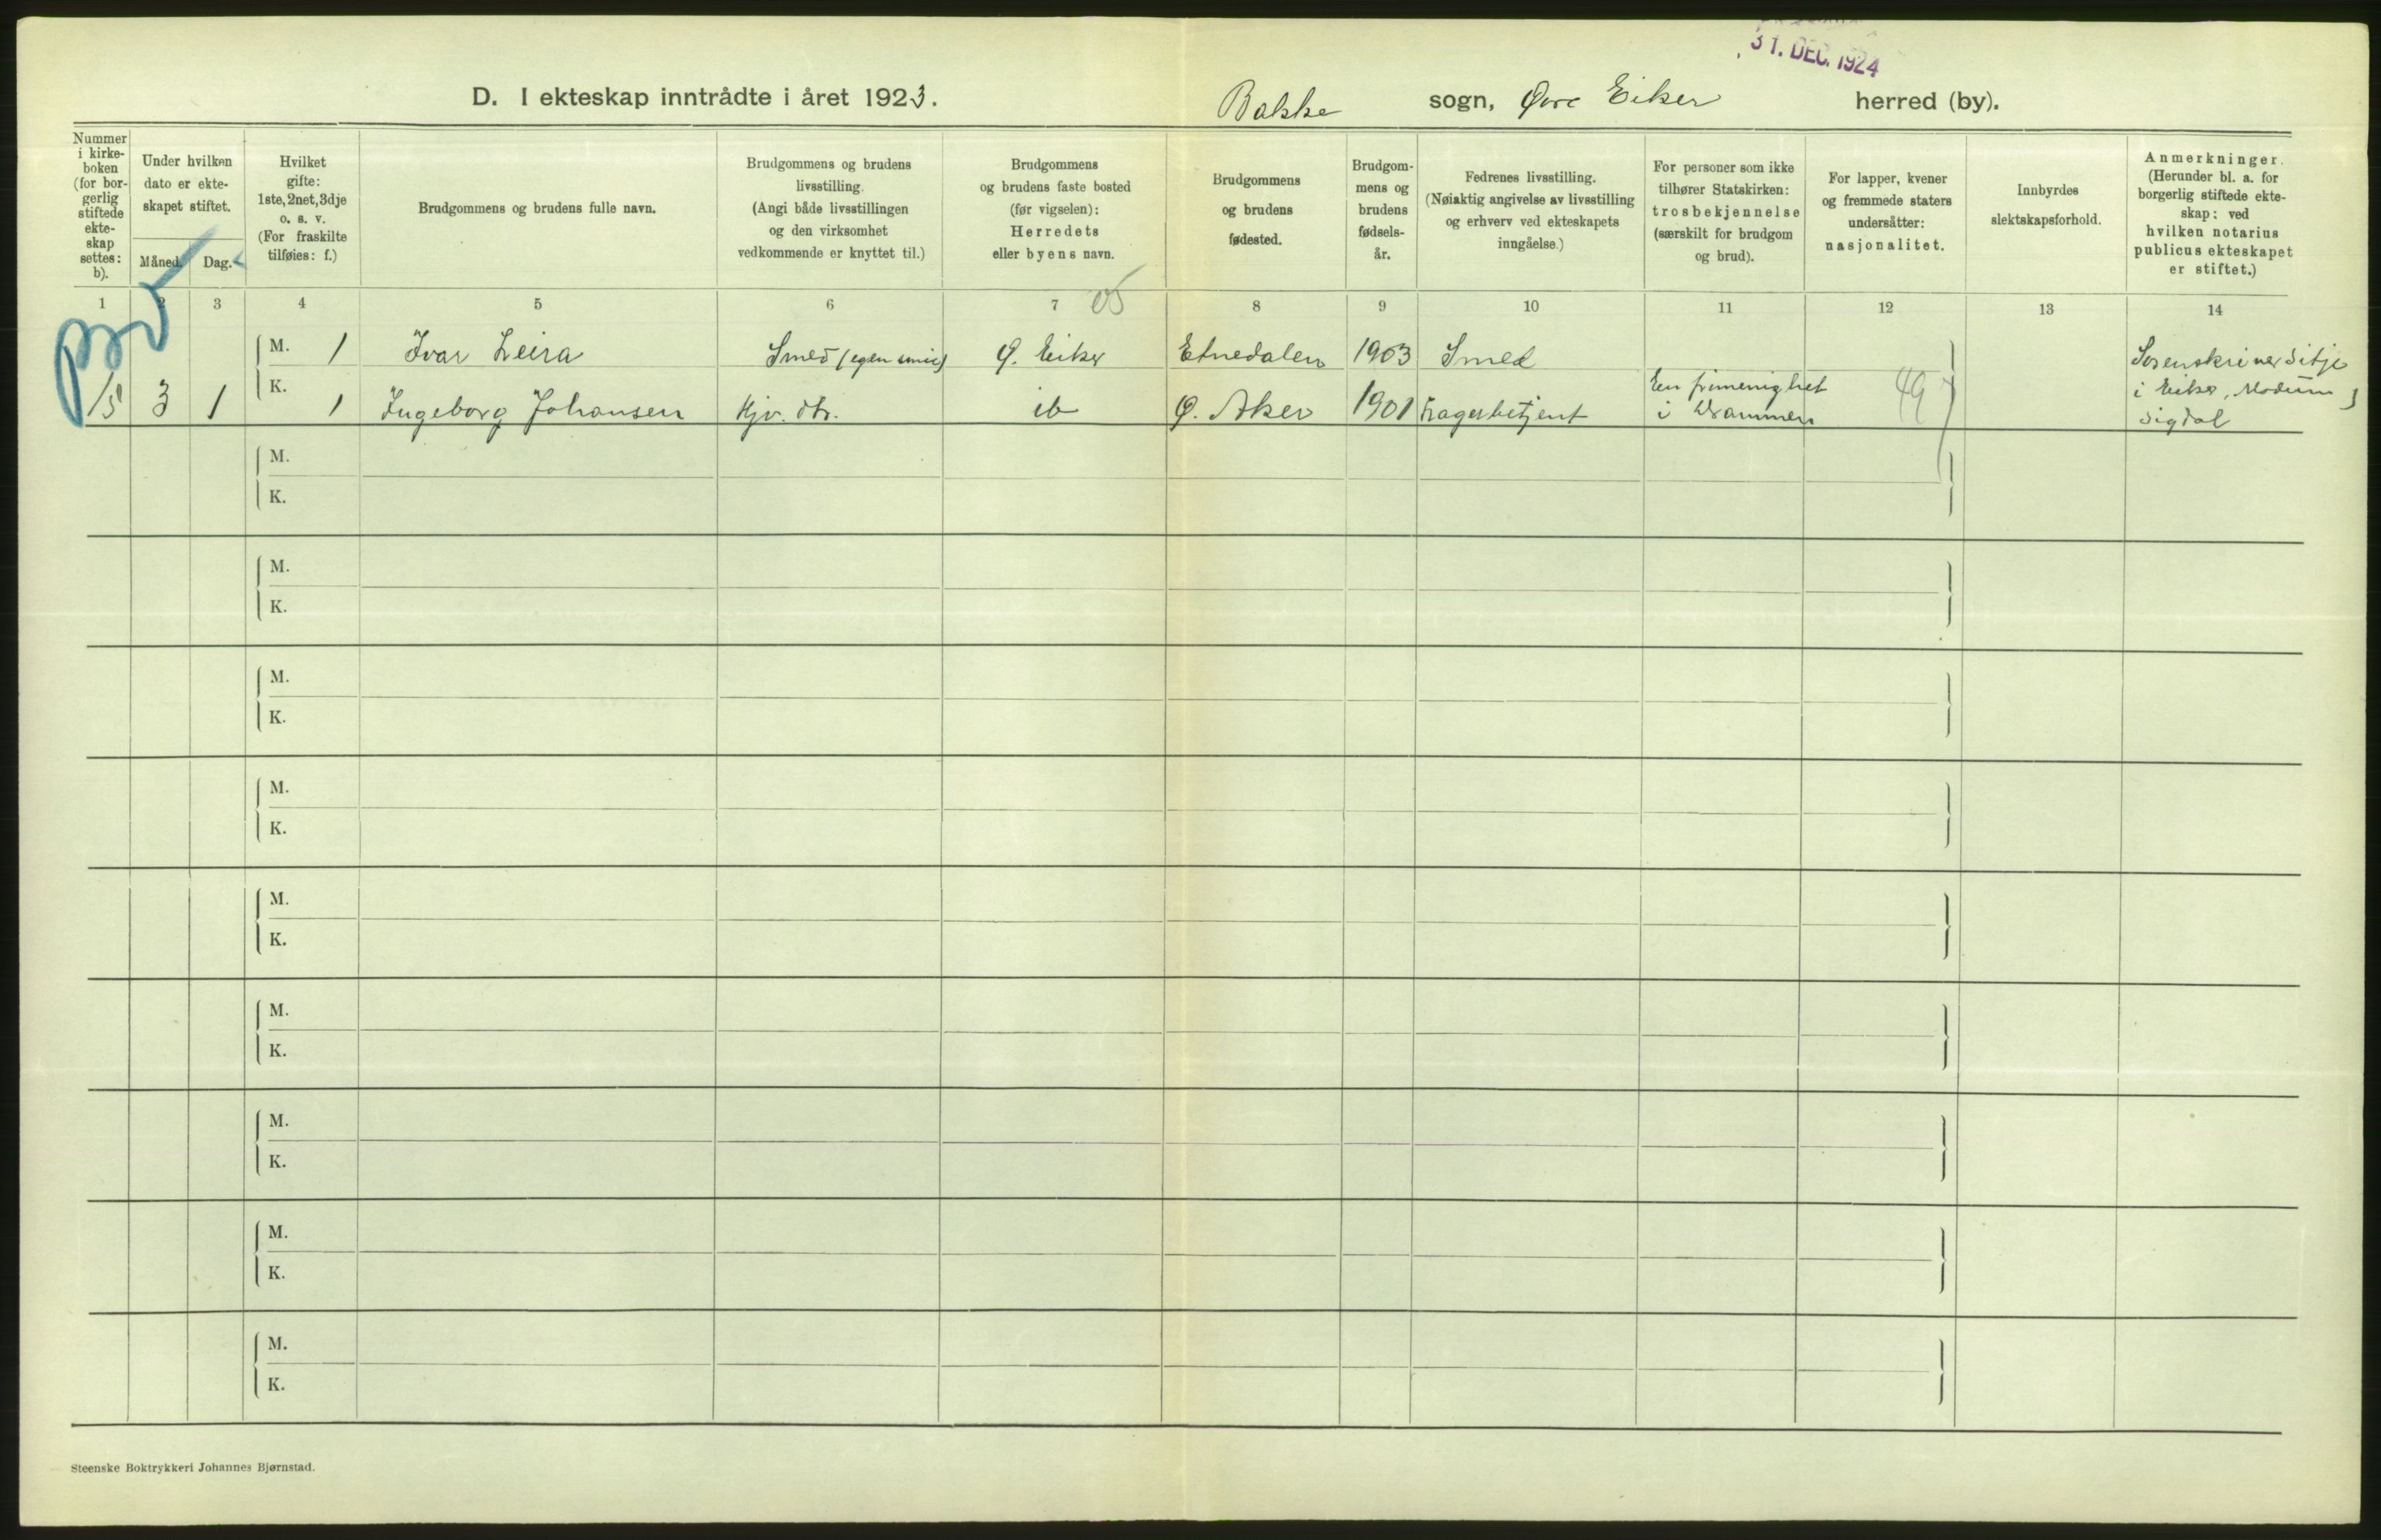 31. DEC. 1924
D. I ekteskap inntrådte i året 1923. Bakke sogn, Øvre Eiker herred (by).
Nummer i kirkeboken (for borgerlig stiftede ekteskap settes: b).
Under hvilken dato er ekteskapet stiftet.
Måned. Dag.
Hvilket gifte: 1ste, 2net, 3dje o. s. v. (For fraskilte tilføies: f.)
Brudgommens og brudens fulle navn.
Brudgommens og brudens livsstilling. (Angi både livsstillingen og den virksomhet vedkommende er knyttet til.)
Brudgommens og brudens faste bosted (før vigselen): Herredets eller byens navn.
Brudgommens og brudens fødested.
Brudgommens og brudens fødselsår.
Fedrenes livsstilling. (Nøiaktig angivelse av livsstilling og erhverv ved ekteskapets inngåelse.)
For personer som ikke tilhører Statskirken: trosbekjennelse (særskilt for brudgom og brud).
For lapper, kvener og fremmede staters undersåtter: nasjonalitet.
Innbyrdes slektskapsforhold.
Anmerkninger. (Herunder bl. a. for borgerlig stiftede ekteskap: ved hvilken notarius publicus ekteskapet er stiftet.)
1 2 3 4 5 6 7 8 9 10 11 12 13 14
M. 1 Ivar Leira Smed (egen smie) Ø. Eiker Etnedalen 1903 Smed
3 1 K. 1 Ingeborg Johansen Hjv. dtr. ib Ø. Aker 1901 Lagerbetjent En frimenighet i Drammen 49
Sorenskriver Sitje
i Eiker, Modum
Sigdal
M.
K.
M.
K.
M.
K.
M.
K.
M.
K.
M.
K.
M.
K.
M.
K.
M.
K.
Steenske Boktrykkeri Johannes Bjørnstad.